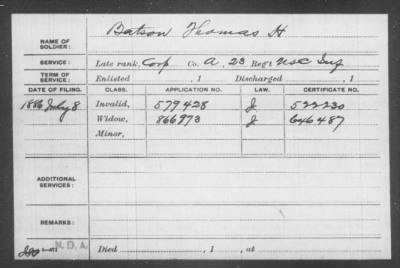 NAME OF SOLDIER: Batson Thomas H
SERVICE: Late rank, Corp Co. A, 23 Reg't USC Inf
TERM OF SERVICE: Enlisted , 1 Discharged , 1
DATE OF FILING. CLASS. APPLICATION NO. LAW. CERTIFICATE NO.
1886 July 8 Invalid, 579428 J 522230
Widow, 866973 J 646487
Minor,
ADDITIONAL SERVICES:
REMARKS:
N.D.A. Died , 1 , at